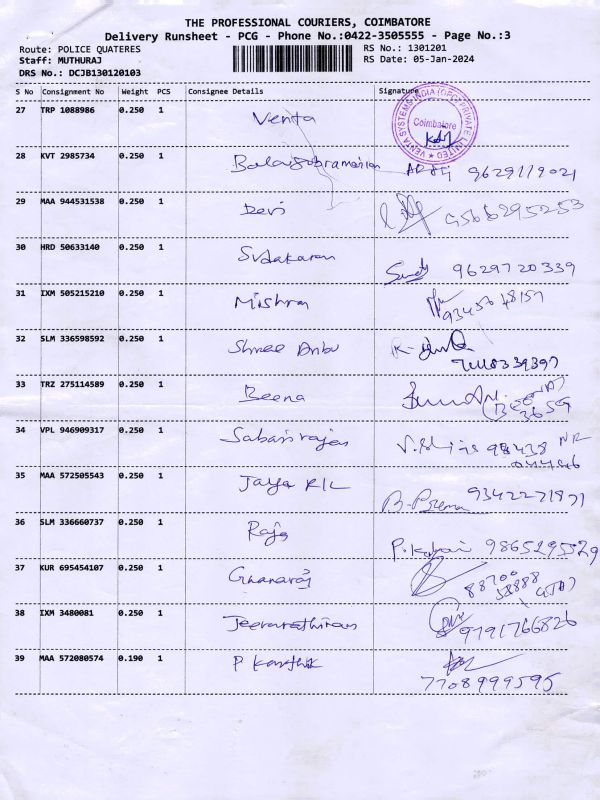 THE PROFESSIONAL COURIERS, COIMBATORE
Delivery Runsheet - PCG - Phone No.:0422-3505555 - Page No.:3
Route: POLICE QUATERES
RS No.: 1301201
Staff: MUTHURAJ
RS Date: 05-Jan-2024
DRS No.: DCJB130120103
S No Consignment No Weight PCS Consignee Details Signature
27 TRP 1088986 0.250 1 Venta
VENTA SYSTEMS INDIA (OPC) PRIVATE LIMITED ★ Coimbatore
28 KVT 2985734 0.250 1 Balasubramanian 9629119021
29 MAA 944531538 0.250 1 Devi 9566295253
30 HRD 50633140 0.250 1 Sudakaran 9629720339
31 IXM 505215210 0.250 1 Mishra
32 SLM 336598592 0.250 1 Shree Anbu
33 TRZ 275114589 0.250 1 Beena
34 VPL 946909317 0.250 1 Sabarirajan 98438
35 MAA 572505543 0.250 1 Jaya RIL
B-Prema 9342271871
36 SLM 336660737 0.250 1 Raja
37 KUR 695454107 0.250 1 Ghanaraj
88700
58888
38 IXM 3480081 0.250 1 9791766826
39 MAA 572080574 0.190 1 P Karthik
7708999595